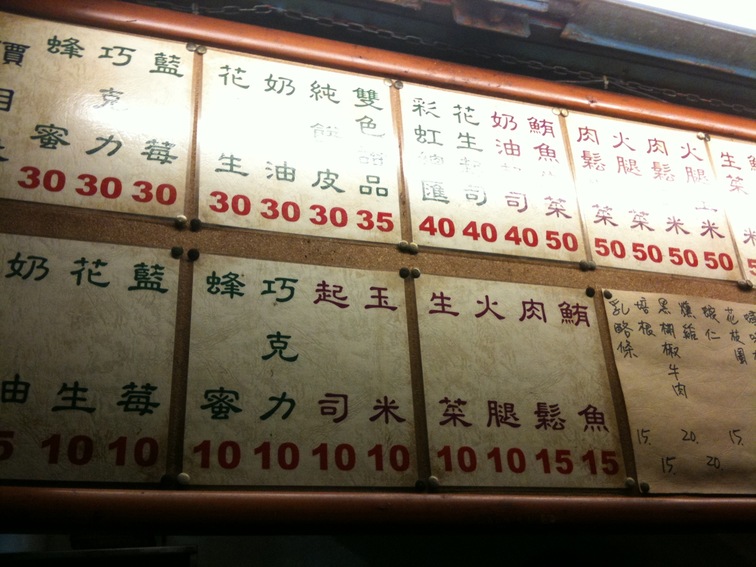 價目
蜂蜜 30
巧克力 30
藍莓 30
花生 30
奶油 30
純餅皮 30
雙色品 35
彩虹匯 40
花生起司 40
奶油司 40
鮪魚菜 50
肉鬆菜 50
火腿菜 50
肉鬆米 50
火腿玉米 50
生菜
奶油
花生 10
藍莓 10
蜂蜜 10
巧克力 10
起司 10
玉米 10
生菜 10
火腿 10
肉鬆 15
鮪魚 15
乳酪條 15.
培根 15.
黑胡椒牛肉 20.
燻雞 20.
蝦仁
花枝圈 15.